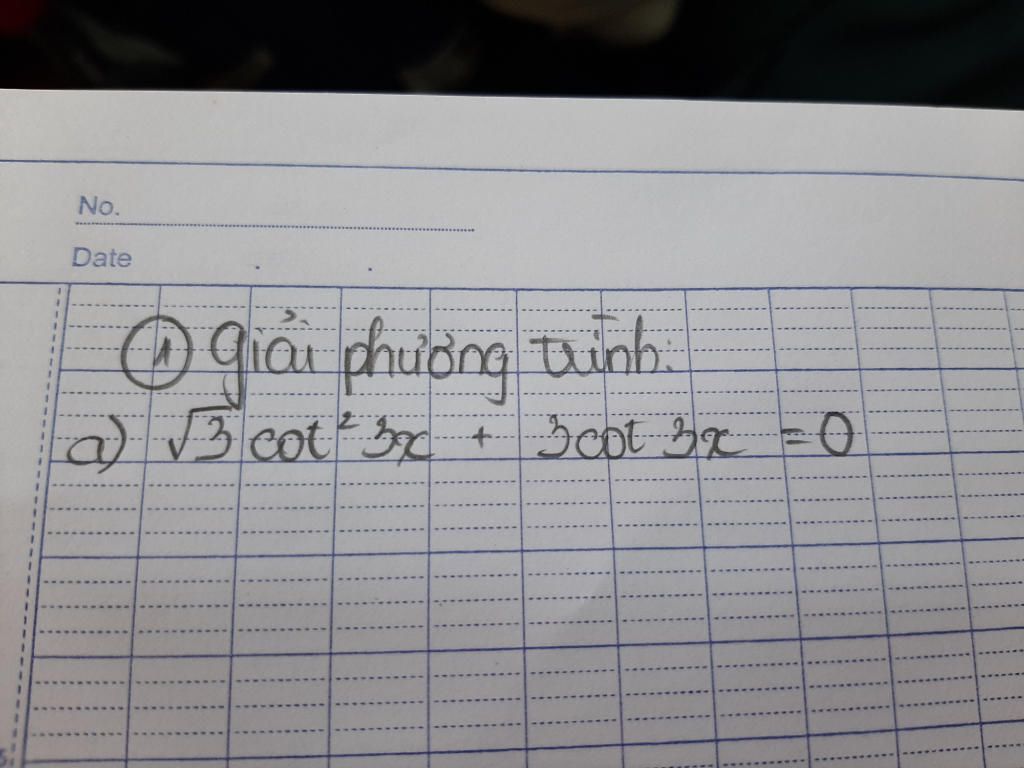 No.
Date
① Giải phương trình:
a) √3 cot² 3x + 3cot 3x = 0